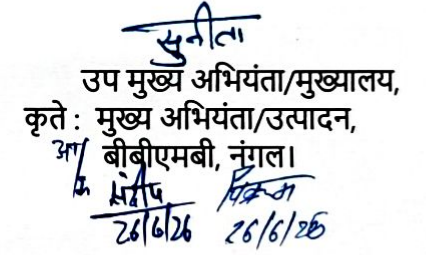 सुनीता
उप मुख्य अभियंता/मुख्यालय,
कृते : मुख्य अभियंता/उत्पादन,
बीबीएमबी, नंगल।
संदीप विक्रम
26/6/26 26/6/26